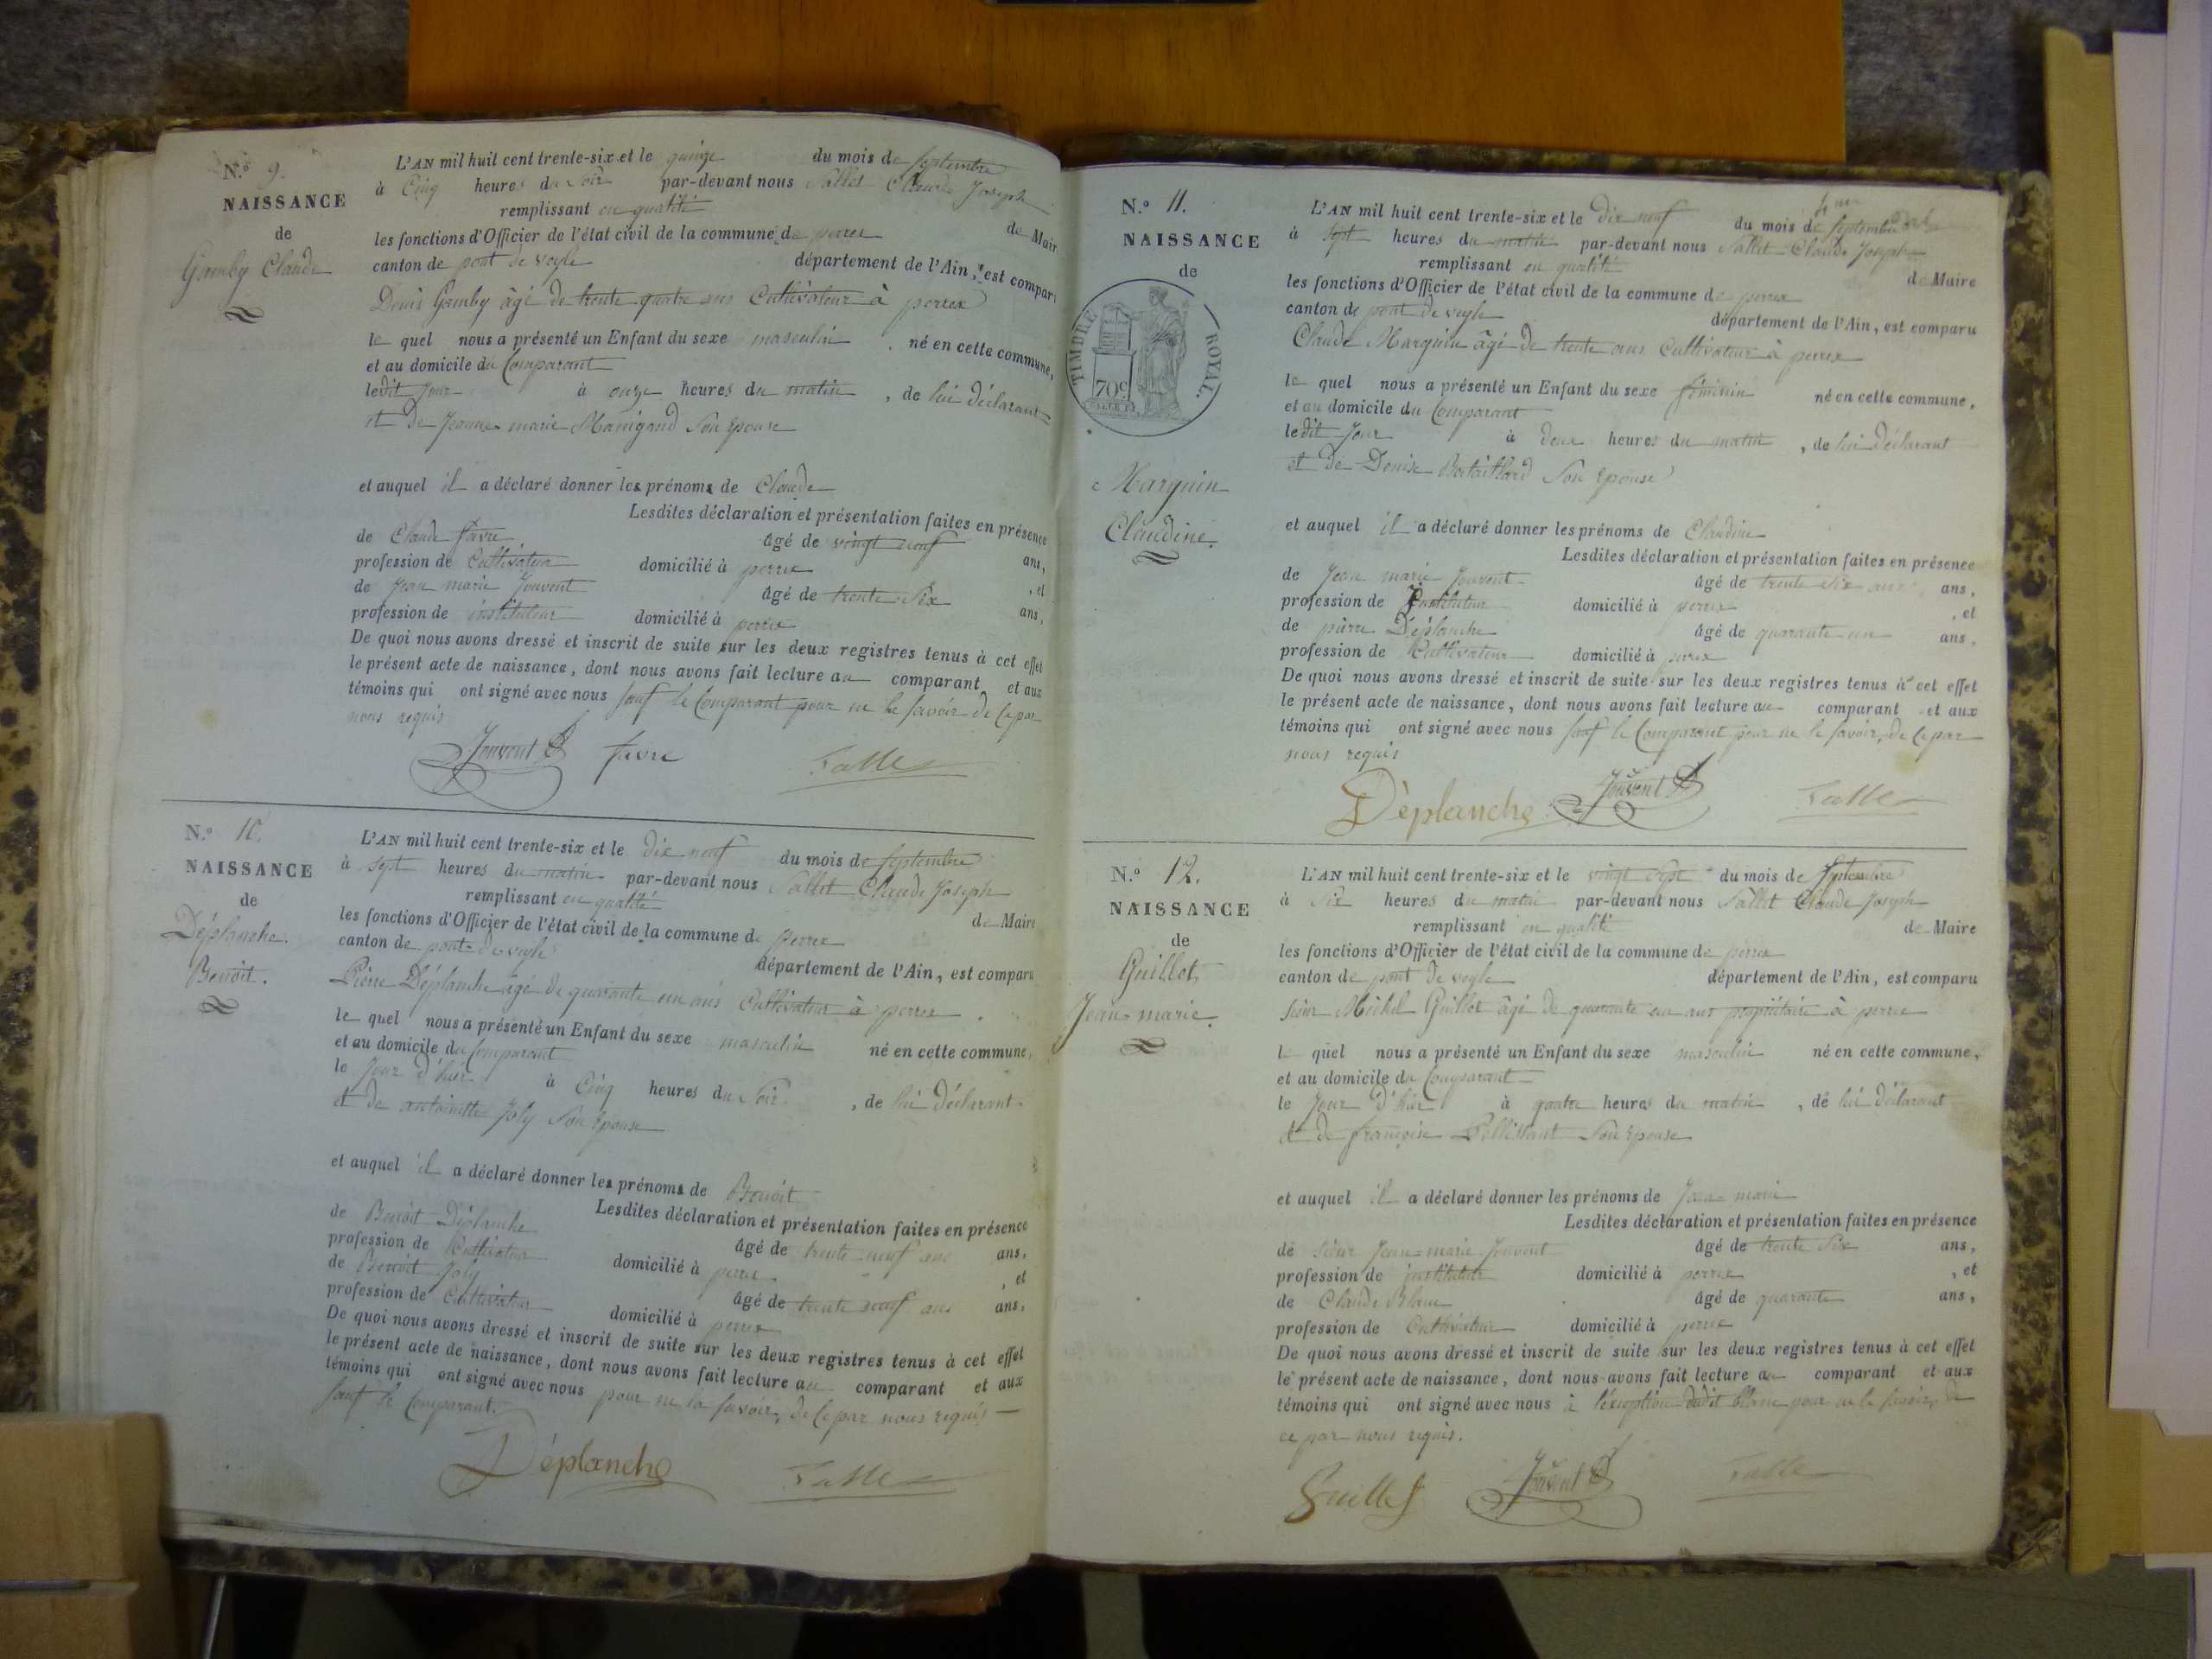 N.º 9.
NAISSANCE
de
Gamby Claude
L'AN mil huit cent trente-six et le quinze du mois de septembre
à Cinq heures du soir par-devant nous Claude Joseph
remplissant en qualité de Mair
les fonctions d'Officier de l'état civil de la commune de perrex
canton de pont de veyle département de l'Ain, est compar
Denis Gamby âgé de trente quatre ans Cultivateur à perrex
le quel nous a présenté un Enfant du sexe masculin né en cette commune,
et au domicile du Comparant
ledit jour à onze heures du matin, de lui déclarant
et de Jeanne marie Manigand son épouse
et auquel il a déclaré donner les prénoms de Claude
Lesdites déclaration et présentation faites en présence
de Claude favre âgé de vingt neuf ans,
profession de Cultivateur domicilié à perrex, et
de Jean marie Jouvent âgé de trente six ans,
profession de instituteur domicilié à perrex
De quoi nous avons dressé et inscrit de suite sur les deux registres tenus à cet effet
le présent acte de naissance, dont nous avons fait lecture au comparant et aux
témoins qui ont signé avec nous sauf le Comparant pour ne le savoir de ce par
nous requis
Jouvent favre
N.º 10.
NAISSANCE
de
Déplanche
Benoit.
L'AN mil huit cent trente-six et le dix neuf du mois de septembre
à sept heures du matin par-devant nous Claude Joseph
remplissant en qualité de Maire
les fonctions d'Officier de l'état civil de la commune de perrex
canton de pont de veyle département de l'Ain, est comparu
Pierre Déplanche âgé de quarante un ans Cultivateur à perrex
le quel nous a présenté un Enfant du sexe masculin né en cette commune,
et au domicile du Comparant
le jour d'hier à Cinq heures du soir, de lui déclarant
et de antoinette Joly son épouse
et auquel il a déclaré donner les prénoms de Benoit
Lesdites déclaration et présentation faites en présence
de Benoit Déplanche âgé de trente neuf ans ans,
profession de Cultivateur domicilié à perrex, et
de Benoit Joly âgé de trente neuf ans ans,
profession de Cultivateur domicilié à perrex
De quoi nous avons dressé et inscrit de suite sur les deux registres tenus à cet effet
le présent acte de naissance, dont nous avons fait lecture au comparant et aux
témoins qui ont signé avec nous pour ne le savoir, de ce par nous requis
sauf le Comparant.
Déplanche
N.º 11.
NAISSANCE
de
TIMBRE ROYAL.
70c
Marguin
Claudine.
L'AN mil huit cent trente-six et le dix neuf du mois de septembre
à sept heures du matin par-devant nous Claude Joseph
remplissant en qualité de Maire
les fonctions d'Officier de l'état civil de la commune de perrex
canton de pont de veyle département de l'Ain, est comparu
Claude Marguin âgé de trente ans Cultivateur à perrex
le quel nous a présenté un Enfant du sexe féminin né en cette commune,
et au domicile du Comparant
ledit jour à deux heures du matin, de lui déclarant
et de Denise son épouse
et auquel il a déclaré donner les prénoms de Claudine
Lesdites déclaration et présentation faites en présence
de Jean marie Jouvent âgé de trente six ans ans,
profession de Instituteur domicilié à perrex, et
de pierre Déplanche âgé de quarante un ans,
profession de Cultivateur domicilié à perrex
De quoi nous avons dressé et inscrit de suite sur les deux registres tenus à cet effet
le présent acte de naissance, dont nous avons fait lecture au comparant et aux
témoins qui ont signé avec nous sauf le Comparant pour ne le savoir, de ce par
nous requis
Déplanche Jouvent
N.º 12.
NAISSANCE
de
Guillot,
Jean-marie.
L'AN mil huit cent trente-six et le vingt sept du mois de septembre
à six heures du matin par-devant nous Claude Joseph
remplissant en qualité de Maire
les fonctions d'Officier de l'état civil de la commune de perrex
canton de pont de veyle département de l'Ain, est comparu
sieur Michel Guillot âgé de quarante un ans propriétaire à perrex
le quel nous a présenté un Enfant du sexe masculin né en cette commune,
et au domicile du Comparant
le jour d'hier à quatre heures du matin, de lui déclarant
et de françoise son épouse
et auquel il a déclaré donner les prénoms de Jean-marie
Lesdites déclaration et présentation faites en présence
de sieur Jean-marie Jouvent âgé de trente six ans,
profession de instituteur domicilié à perrex, et
de Claude Blanc âgé de quarante ans,
profession de Cultivateur domicilié à perrex
De quoi nous avons dressé et inscrit de suite sur les deux registres tenus à cet effet
le présent acte de naissance, dont nous avons fait lecture au comparant et aux
témoins qui ont signé avec nous à l'exception dudit blanc pour ne le savoir, de
ce par nous requis.
Guillot Jouvent